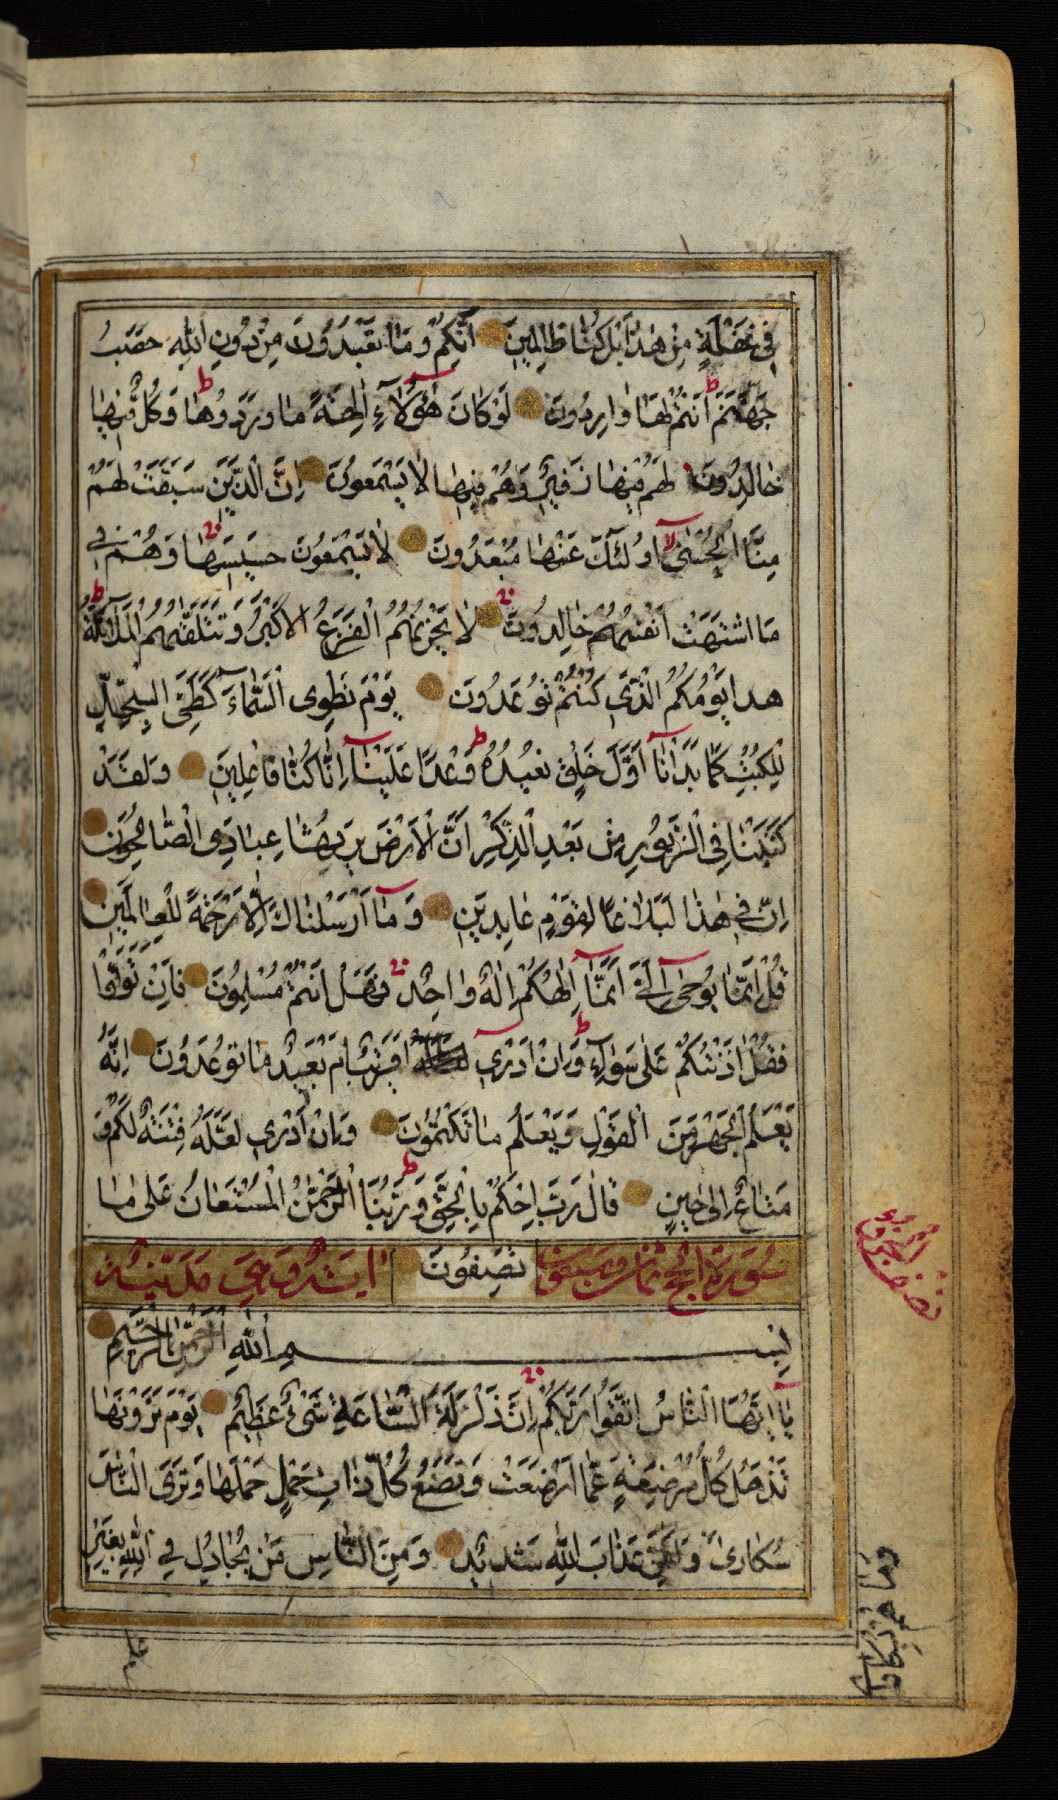 فِى غَفْلَةٍ مِنْ هٰذَا بَلْ كُنَّا ظَالِمِينَ اِنَّكُمْ وَمَا تَعْبُدُونَ مِنْ دُونِ اللهِ حَصَبُ
جَهَنَّمَ اَنْتُمْ لَهَا وَارِدُونَ لَوْ كَانَ هٰؤُلَاءِ اٰلِهَةً مَا وَرَدُوهَا وَكُلٌّ فِيهَا
خَالِدُونَ لَهُمْ فِيهَا زَفِيرٌ وَهُمْ فِيهَا لَا يَسْمَعُونَ اِنَّ الَّذِينَ سَبَقَتْ لَهُمْ
مِنَّا الْحُسْنٰى اُولٰئِكَ عَنْهَا مُبْعَدُونَ لَا يَسْمَعُونَ حَسِيسَهَا وَهُمْ فِى
مَا اشْتَهَتْ اَنْفُسُهُمْ خَالِدُونَ لَا يَحْزُنُهُمُ الْفَزَعُ الْاَكْبَرُ وَتَتَلَقّٰهُمُ الْمَلٰئِكَةُ
هذا يَوْمُكُمُ الَّذِى كُنْتُمْ تُوعَدُونَ يَوْمَ نَطْوِى السَّمَاءَ كَطَىِّ السِّجِلِّ
لِلْكُتُبِ كَمَا بَدَاْنَا اَوَّلَ خَلْقٍ نُعِيدُهُ وَعْدًا عَلَيْنَا اِنَّا كُنَّا فَاعِلِينَ وَلَقَدْ
كَتَبْنَا فِى الزَّبُورِ مِنْ بَعْدِ الذِّكْرِ اَنَّ الْاَرْضَ يَرِثُهَا عِبَادِىَ الصَّالِحُونَ
اِنَّ فِى هٰذَا لَبَلَاغًا لِقَوْمٍ عَابِدِينَ وَمَا اَرْسَلْنَاكَ اِلَّا رَحْمَةً لِلْعَالَمِينَ
قُلْ اِنَّمَا يُوحٰى اِلَىَّ اَنَّمَا اِلٰهُكُمْ اِلٰهٌ وَاحِدٌ فَهَلْ اَنْتُمْ مُسْلِمُونَ فَاِنْ تَوَلَّوْا
فَقُلْ اٰذَنْتُكُمْ عَلٰى سَوَاءٍ وَاِنْ اَدْرِى اَقَرِيبٌ اَمْ بَعِيدٌ مَا تُوعَدُونَ اِنَّهُ
يَعْلَمُ الْجَهْرَ مِنَ الْقَوْلِ وَيَعْلَمُ مَا تَكْتُمُونَ وَاِنْ اَدْرِى لَعَلَّهُ فِتْنَةٌ لَكُمْ وَ
مَتَاعٌ اِلٰى حِينٍ قَالَ رَبِّ احْكُمْ بِالْحَقِّ وَرَبُّنَا الرَّحْمٰنُ الْمُسْتَعَانُ عَلٰى مَا
سُورَةُ الْحَجِّ ثمان وسبعون تَصِفُونَ اٰيَةٌ وَهِىَ مَدَنِيَّةٌ
بِسْمِ اللهِ الرَّحْمٰنِ الرَّحِيمِ
يَا اَيُّهَا النَّاسُ اتَّقُوا رَبَّكُمْ اِنَّ زَلْزَلَةَ السَّاعَةِ شَىْءٌ عَظِيمٌ يَوْمَ تَرَوْنَهَا
تَذْهَلُ كُلُّ مُرْضِعَةٍ عَمَّا اَرْضَعَتْ وَتَضَعُ كُلُّ ذَاتِ حَمْلٍ حَمْلَهَا وَتَرَى النَّاسَ
سُكَارٰى وَلٰكِنَّ عَذَابَ اللهِ شَدِيدٌ وَمِنَ النَّاسِ مَنْ يُجَادِلُ فِى اللهِ بِغَيْرِ
علم
وَمَا هُمْ بِسُكَارٰى
نصف الجزو